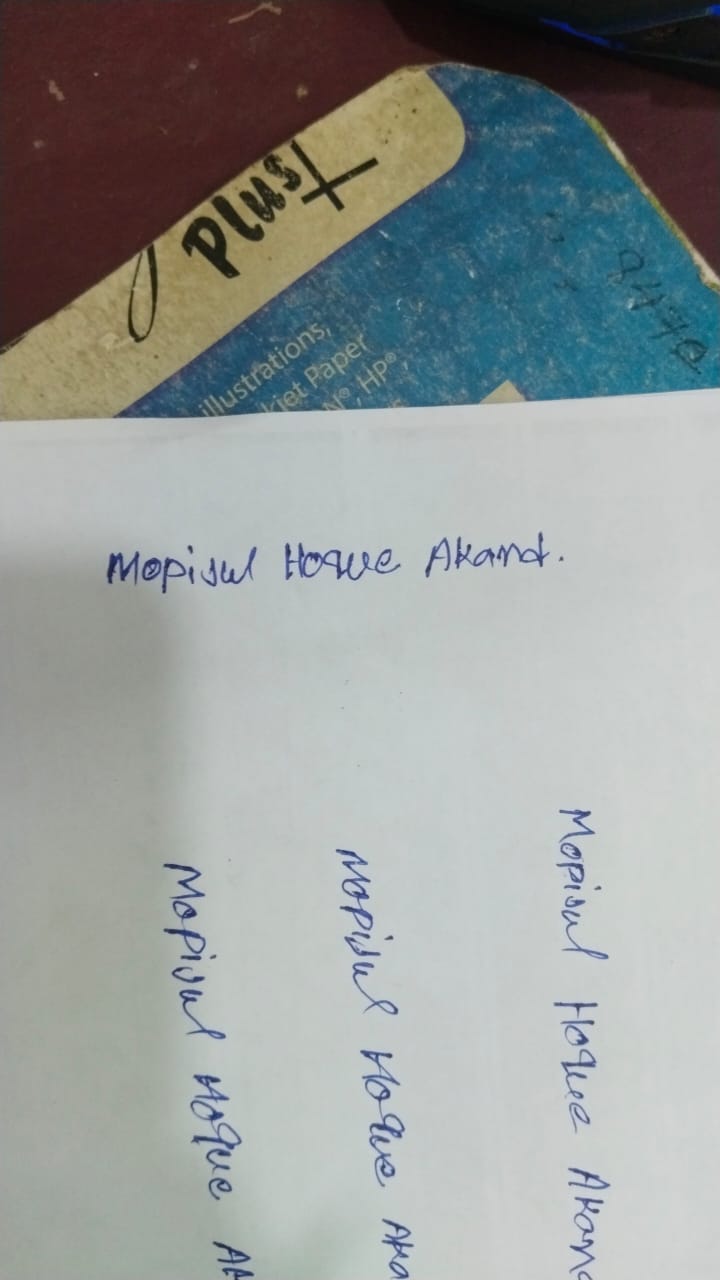 Plus+
illustrations,
kjet Paper
N®, HP®
Mopisul Hoque Akand.
Mopisul Hoque Akand
Mopisul Hoque Aka
Mopisul Hoque Ak